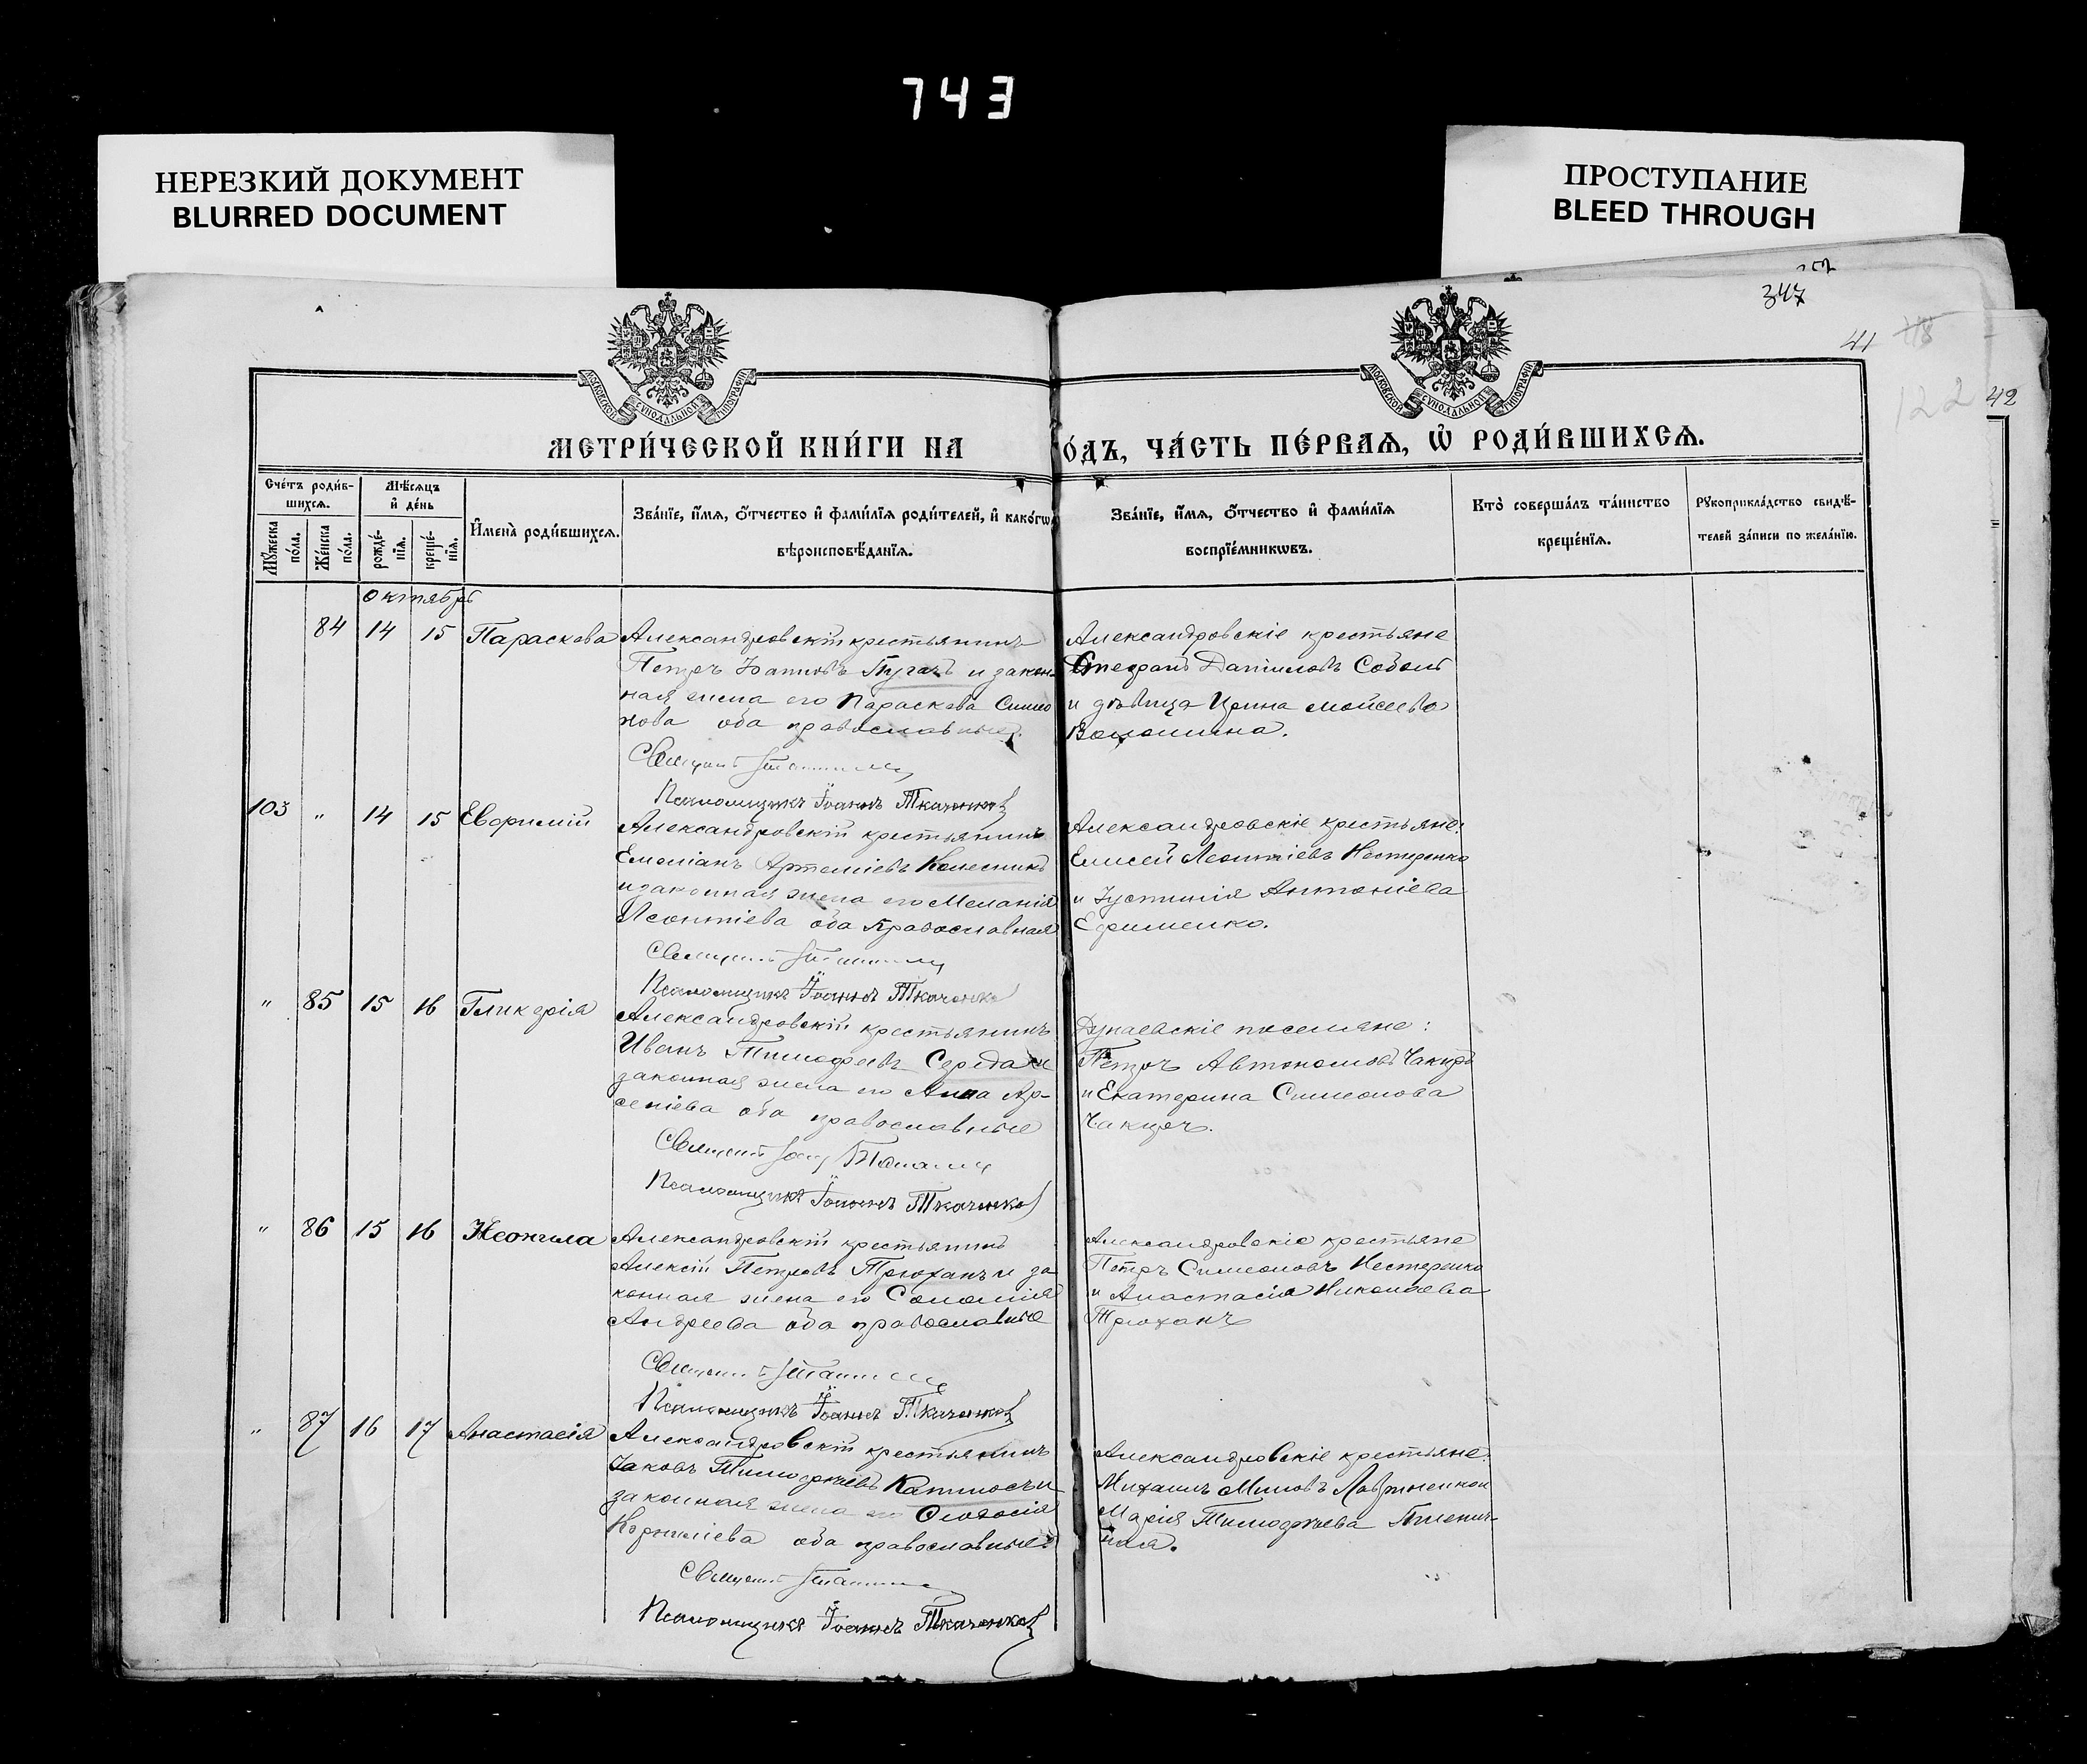 743
НЕРЕЗКИЙ ДОКУМЕНТ
BLURRED DOCUMENT
ПРОСТУПАНИЕ
BLEED THROUGH
347
41
122
42
МОСКОВСКОЙ СѴНОДАЛЬНОЙ ТИПОГРАФІИ
МОСКОВСКОЙ СѴНОДАЛЬНОЙ ТИПОГРАФІИ
МЕТРИ́ЧЕСКОЙ КНИ́ГИ НА
О́ДЪ, ЧА́СТЬ ПЕ́РВАѦ, Ѡ҆ РОДИ́ВШИХСѦ.
Сче́тъ роди́в-
шихсѧ.
Мꙋ́жеска
по́ла.
Же́нска
по́ла.
Мѣ́сѧцъ
и҆ де́нь
рожде́-
нїѧ.
креще́-
нїѧ.
И҆мена̀ роди́вшихсѧ.
Зва́нїе, и҆́мѧ, ѻ҆́тчество и҆ фами́лїѧ роди́телей, и҆ како́гѡ
вѣроисповѣ́данїѧ.
Зва́нїе, и҆́мѧ, ѻ҆́тчество и҆ фами́лїѧ
воспрїе́мникѡвъ.
Кто̀ соверша́лъ та́инство
креще́нїѧ.
Рꙋкоприкла́дство свидѣ́-
телей за́писи по жела́нїю.
Октябрь
84 14 15 Параскева
Александровскій крестьянинъ
Петръ Іоанновъ Пугачъ и закон-
ная жена его Параскева Симео
нова оба православные.
Священ
Псаломщикъ Іоаннъ Ткаченко
Александровскіе крестьяне
Стефанъ Даніиловъ Соболь
и дѣвица Ирина Моисеева
Волошина.
103 " 14 15 Евфимій
Александровскій крестьянинъ
Емеліанъ Артеміевъ Колесникъ
и законная жена его Меланія
Леонтіева оба православная
Священ
Псаломщикъ Іоаннъ Ткаченко
Александровскіе крестьяне:
Елисей Леонтіевъ Нестеренко
и Іустинія Антоніева
Ефименко.
" 85 15 16 Гликерія
Александровскій крестьянинъ
Иванъ Тимофеевъ Середа и
законная жена его Анна Ар-
сеніева оба православные
Священ
Псаломщикъ Іоаннъ Ткаченко
Дунаевскіе поселяне:
Петръ Автономовъ Чакиръ
и Екатерина Симеонова
Чакиръ.
" 86 15 16 Неонила
Александровскій крестьянинъ
Алексій Петровъ Трюханъ и за
конная жена его Соломія
Андреева оба православные
Священ
Псаломщикъ Іоаннъ Ткаченко
Александровскіе крестьяне
Петръ Симеоновъ Нестеренко
и Анастасія Николаева
Трюханъ
" 87 16 17 Анастасія
Александровскій крестьянинъ
Іаковъ Тимофеевъ и
законная жена его Феодосія
Корниліева оба православные
Священ
Псаломщикъ Іоаннъ Ткаченко
Александровскіе крестьяне:
Михаилъ
Марія Тимофеева Пшенич-
ная.